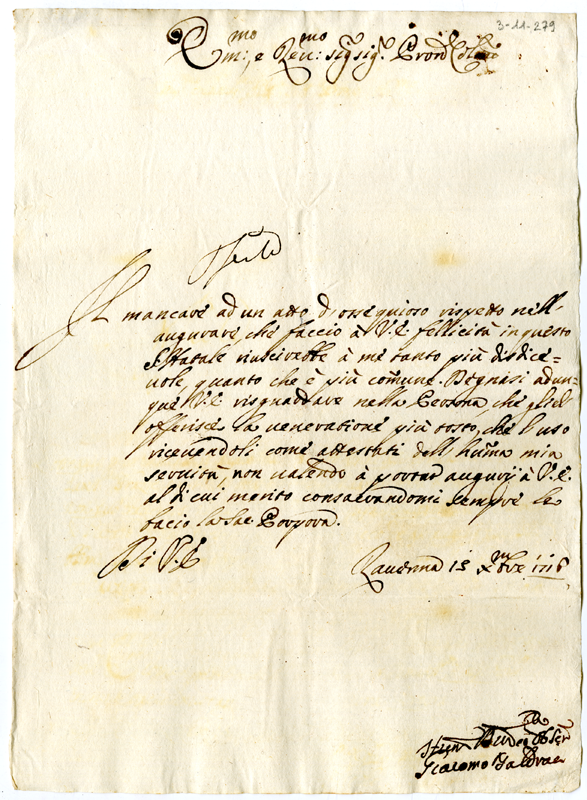 3-11-279
Em:mo, e Reu:mo sig.r sig.r Pron
Il mancare ad un atto d'ossequioso rispetto nell'
augurare, che faccio à V.E. fellicità in questo
S. Natale riuscirebbe à me tanto più disdice=
uole, quanto che è più comune. Degnasi adun
que V.E. risguardare nella
offerisce la veneratione più tosto, che l'uso
riceuendoli come attestati dell'hum̃a mia
seruitù, non ualendo à portar augurij à V.E.
al di cui merito consacrandomi sempre le
bacio la Porpora.
Di V.E.
Rauenna 15 Xmbre 1716
Giacomo